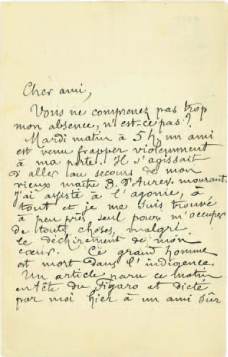 Cher ami,
Vous ne comprenez pas trop
mon absence, n'est-ce pas ?
Mardi matin à 5 h, un ami
est venu frapper violemment
à ma porte. Il s'agissait
d'aller au secours de mon
vieux maître B. D'Aurev. mourant
J'ai assisté à l'agonie, à
tout et je me suis trouvé
à peu près seul pour m'occuper
de toutes choses, malgré
le déchirement de mon
cœur. Ce grand homme
est mort dans l'indigence
Un article paru ce matin
en tête du Figaro et dicté
par moi hier à un ami sûr